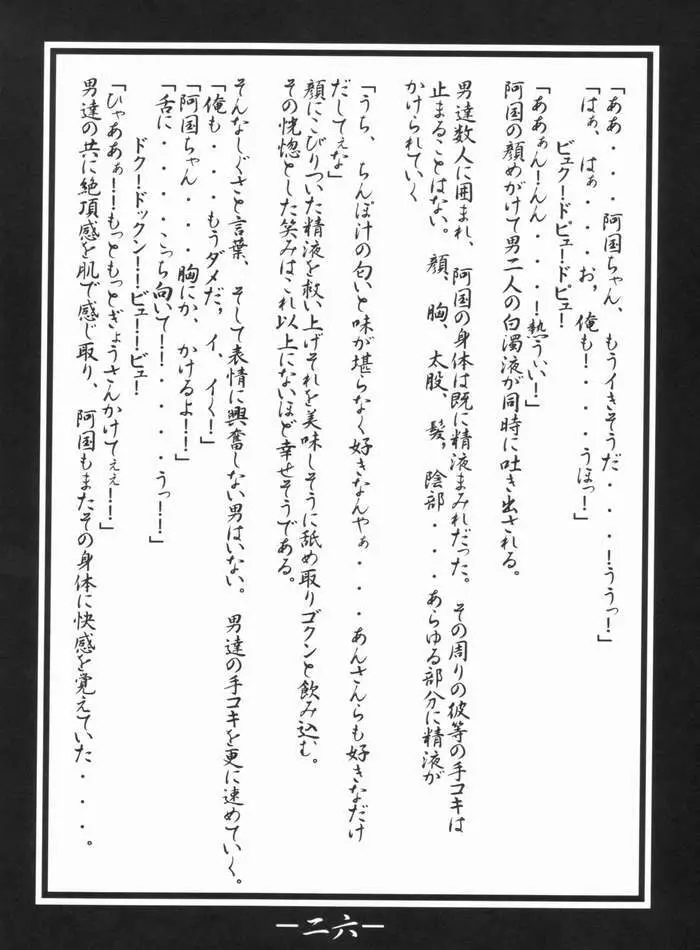 「ああ・・・阿国ちゃん、もうイきそうだ・・・！ううっ！」
「はぁ、はぁ・・・お，俺も！・・・・うほっ！」
ビュク！ドビュー！ドピュ！
「ああぁん！んん・・・・！熱うぃい！」
阿国の顔めがけて男二人の白濁液が同時に吐き出される。
男達数人に囲まれ、阿国の身体は既に精液まみれだった。その周りの彼等の手コキは
止まることはない。顔，胸，太股，髪，陰部・・・あらゆる部分に精液が
かけられていく
「うち、ちんぽ汁の匂いと味が堪らなく好きなんやぁ・・・あんさんらも好きなだけ
だしてえな」
顔にこびりついた精液を救い上げそれを美味しそうに舐め取りゴクンと飲み込む。
その恍惚とした笑みはこれ以上にないほど幸せそうである。
そんなしぐさと言葉、そして表情に興奮しない男はいない。男達の手コキを更に速めていく。
「俺も・・・もうダメだ，イ、イく！」
「阿国ちゃん・・・胸にか、かけるよ！！」
「舌に・・・・こっち向いて！！・・・・うっ！！」
ドクー！ドックン！ービュー！ービュ！
「ひゃああぁ！！もっともっとぎょうさんかけてぇぇ！！」
男達の共に絶頂感を肌で感じ取り、阿国もまたその身体に快感を覚えていた・・・。
－二六－